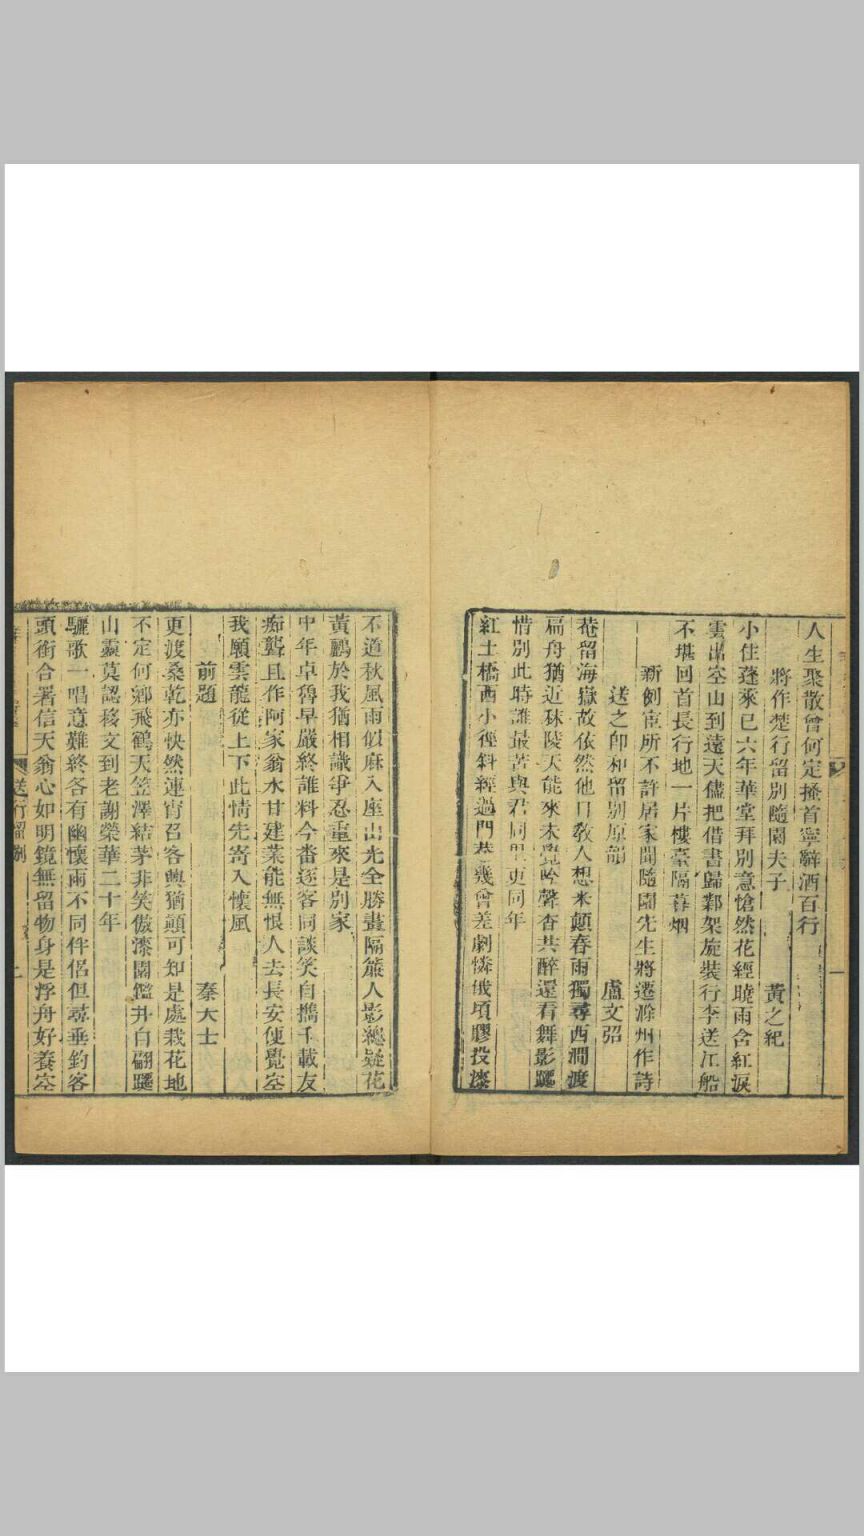 人生聚散曾何定搔首寧辭酒百行
將作楚行留別隨園夫子 黃之紀
小住蓬萊已六年華堂拜別意愴然花經曉雨含紅淚
雲出空山到遠天儘把借書歸鄴架旋裝行李送江船
不堪回首長行地一片樓臺隔暮烟
新例宦所不許居家聞隨園先生將遷滁州作詩
送之卽和留別原韻 盧文弨
菴留海嶽故依然他日敎人想米顛春雨獨尋西澗渡
扁舟猶近秣陵天能來未覺吟聲杳共醉還看舞影躚
惜別此時誰最苦與君同里更同年
紅土橋西小徑斜經過門巷幾曾差劇憐俄頃膠投漆
不道秋風雨似麻入座出光全勝畫隔簾人影總疑花
黃鸝於我猶相識爭忍重來是別家
中年卓魯早嚴終誰料今番逐客同談笑自攜千載友
痴聾且作阿家翁水甘建業能無恨人去長安便覺空
我願雲龍從上下此情先寄入懷風
前題 秦大士
更渡桑乾亦快然連宵召客興猶顛可知是處栽花地
不定何鄉飛鶴天笠澤結茅非笑傲漆園鑑井自翩躚
山靈莫認移文到老謝榮華二十年
驪歌一唱意難終各有幽懷兩不同伴侶但尋垂釣客
頭銜合署信天翁心如明鏡無留物身是浮舟好養空
送行留別